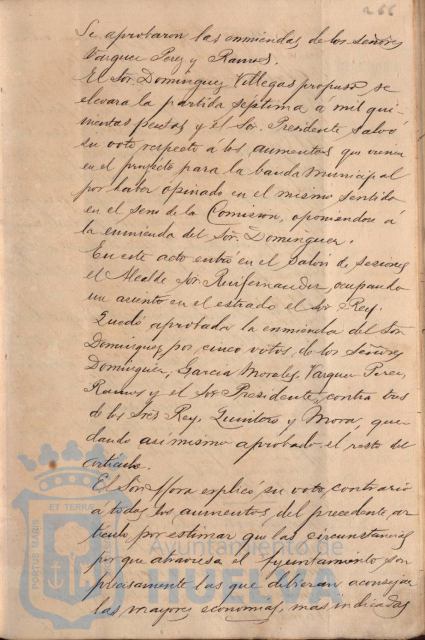 266
Se aprobaron las enmiendas de los señores
Vazquez Perez y Ramos.
El Sor. Dominguez Villegas propuso se
elevara la partida septima á mil qui-
nientas pesetas y el Sor. Presidente salvó
su voto respecto á los aumentos que vienen
en el proyecto para la banda municipal
por haber opinado en el mismo sentido
en el seno de la Comision, oponiendose á
la enmienda del Sor. Dominguez.
En este acto entró en el Salon de sesiones
el Alcalde Sor. ocupando
un asiento en el estrado el Sor Rey.
Quedó aprobada la enmienda del Sor
Dominguez por cinco votos, de los Señores
Dominguez, Garcia Morales, Vazquez Perez,
Ramos y el Sor Presidente, contra tres
de los Sres Rey, Quintero y Mora, que-
dando asi mismo aprobado el resto del
articulo.
El Sor Mora explicó su voto contrario
a todos los aumentos del precedente ar-
ticulo por estimar que las circunstancias
porque atraviesa el Ayuntamiento son
precisamente las que debieran aconsejar
las mayores economias, mas indicadas
PORTUS MARIS ET TERRAE
Ayuntamiento de
HUELVA